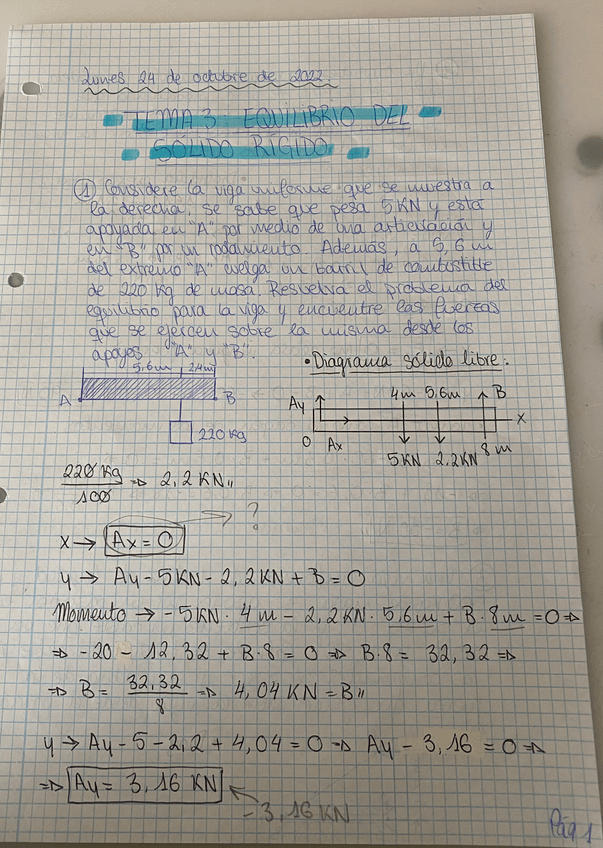 Lunes 24 de octubre de 2022.
TEMA 3 EQUILIBRIO DEL
SÓLIDO RÍGIDO
① Considere la viga uniforme que se muestra a
la derecha, se sabe que pesa 5 KN y está
apoyada en "A" por medio de una articulación y
en "B" por un rodamiento. Además, a 5,6 m
del extremo "A" cuelga un barril de combustible
de 220 kg de masa. Resuelva el problema del
equilibrio para la viga y encuentre las fuerzas
que se ejercen sobre la misma desde los
apoyos "A" y "B".
5,6m 2,4m
A B
220 kg
• Diagrama sólido libre:
Ay 4m 5,6m B
X
O Ax 5KN 2,2KN 8 m
220 kg / 100 => 2,2 KN,,
x → Ax = 0 → ?
y → Ay - 5KN - 2,2KN + B = 0
Momento → - 5KN · 4 m - 2,2KN · 5,6m + B · 8m = 0 =>
=> -20 - 12,32 + B·8 = 0 => B·8 = 32,32 =>
=> B = 32,32 / 8 => 4,04 KN = B,,
y → Ay - 5 - 2,2 + 4,04 = 0 => Ay - 3,16 = 0 =>
=> Ay = 3,16 KN
- 3,16 KN
Pág 1